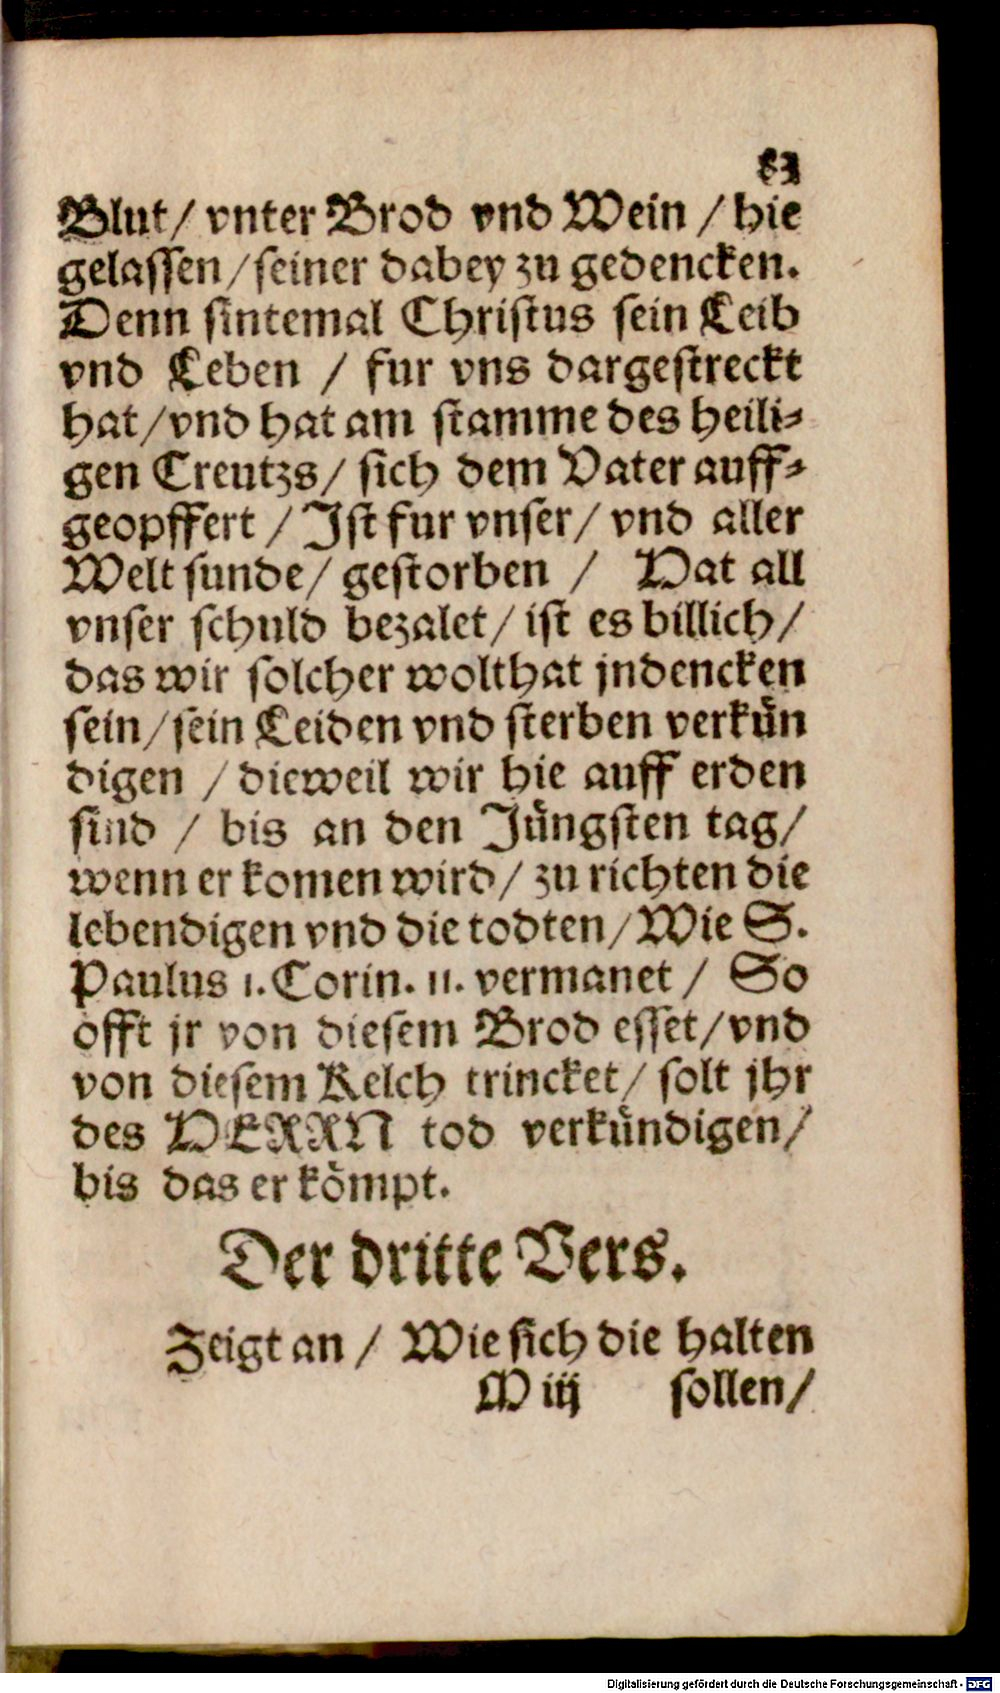 83
Blut / vnter Brod vnd Wein / hie
gelassen / seiner dabey zu gedencken.
Denn sintemal Christus sein Leib
vnd Leben / fur vns dargestreckt
hat / vnd hat am stamme des heili-
gen Creutzs / sich dem Vater auff-
geopffert / Ist fur vnser / vnd aller
Welt sunde / gestorben / Hat all
vnser schuld bezalet / ist es billich /
das wir solcher wolthat jndencken
sein / sein Leiden vnd sterben verkün
digen / dieweil wir hie auff erden
sind / bis an den Jüngsten tag /
wenn er komen wird / zu richten die
lebendigen vnd die todten / Wie S.
Paulus 1. Corin. 11. vermanet / So
offt jr von diesem Brod esset / vnd
von diesem Kelch trincket / solt jhr
des HERRN tod verkündigen /
bis das er kömpt.
Der dritte Vers.
Zeigt an / Wie sich die halten
M iij sollen /
Digitalisierung gefördert durch die Deutsche Forschungsgemeinschaft - DFG